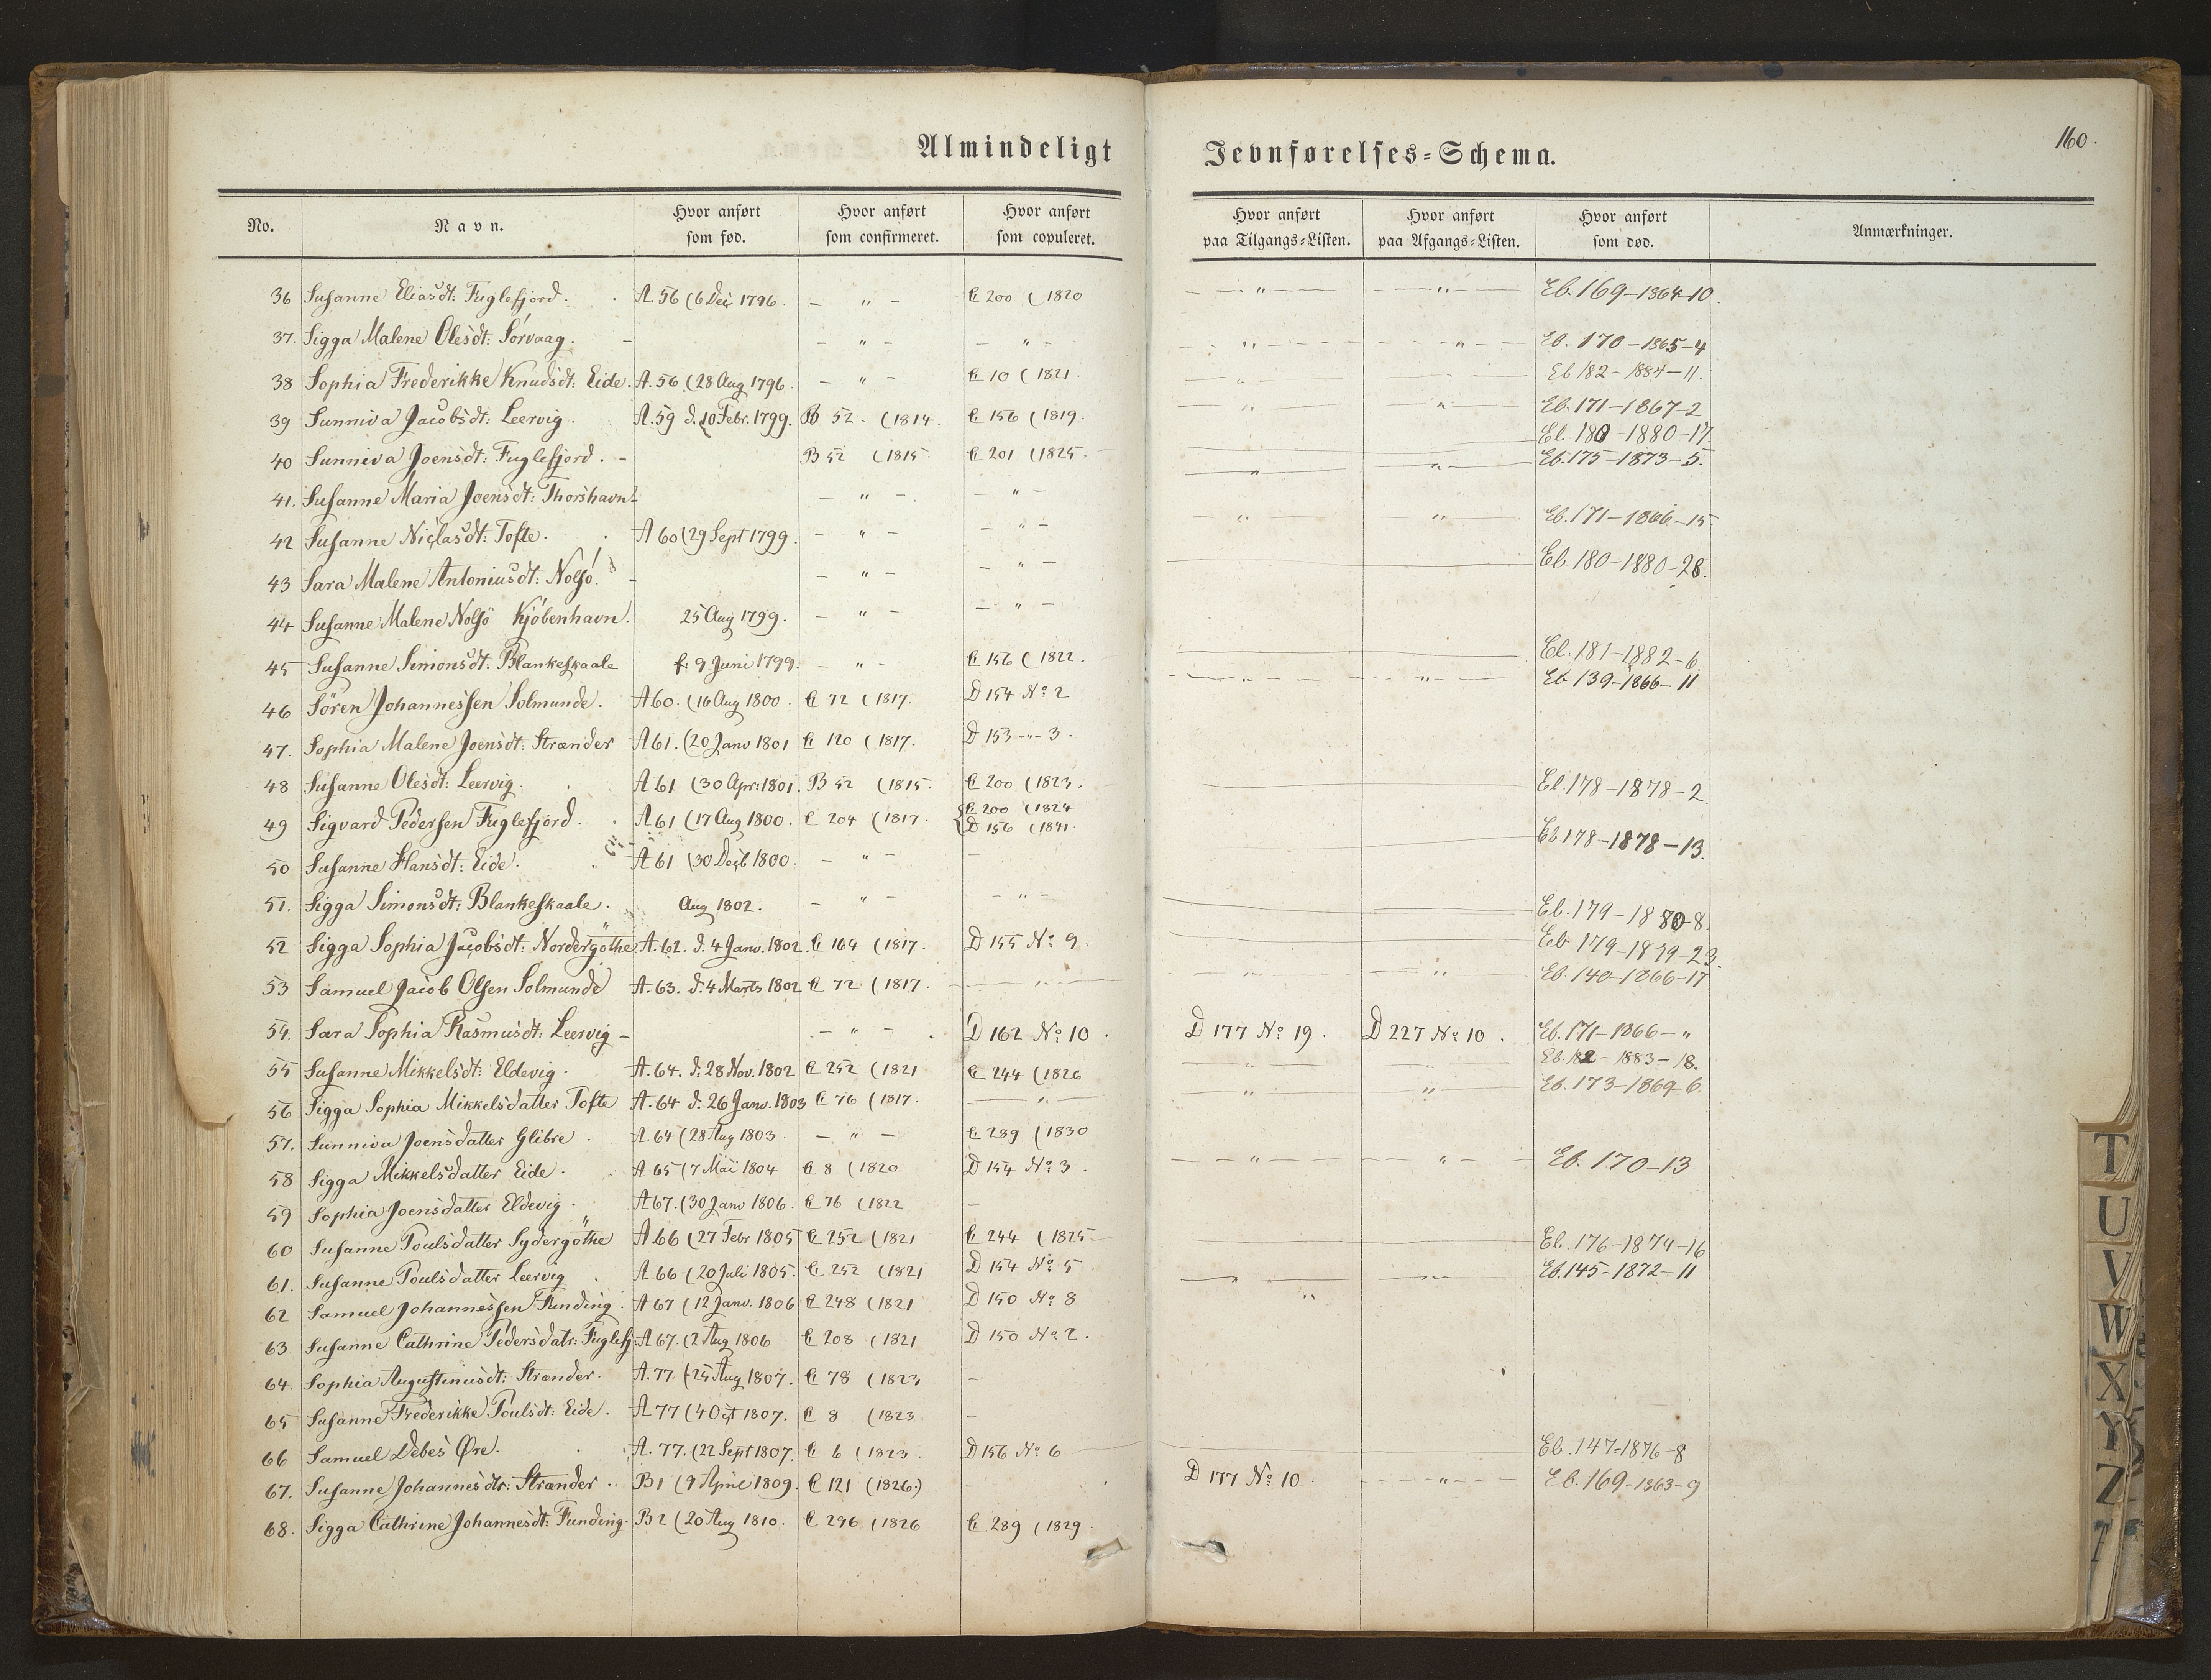 Almindeligt Jevnførelses-Schema.
160.
No. Navn. Hvor anført som fød. Hvor anført som confirmeret. Hvor anført som copuleret. Hvor anført paa Tilgangs-Listen. Hvor anført paa Afgangs-Listen. Hvor anført som død. Anmærkninger.
36 Susanne Eliasdt: Fuglefjord. A. 56 (6 Dec 1796. - " - C 200 (1820 - " - - " - Eb. 169-1864-10.
37. Sigga Malene Olesdt: Sörvaag. - - " - - " - - " - - " - Eb. 170-1865-4
38 Sophia Frederikke Knudsdt: Eide. A. 56 (28 Aug 1796. - " - C 10 (1821. - " - Eb 182-1884-11.
39 Sunniva Jacobsdt: Leervig. A. 59 d. 10 Febr. 1799. B 52. (1814. C 156 (1819. " " Eb. 171-1867-2
Eb. 180-1880-17.
40 Sunniva Joensdt: Fuglefjord. - B 52 (1815 C 201 (1825. " " Eb. 175-1873-5.
41. Susanne Maria Joensdt: Thorshavn - " - - " -
42 Susanne Niclasdt: Tofte. A 60 (29 Sept 1799. - " - - " - - " - - " - Eb. 171-1866-15
43 Sara Malene Antoniusdt: Nolsö. - - " - - " - Eb 180-1880-28.
44 Susanne Malene Nolsö Kjöbenhavn. 25 Aug 1799. - " - - " -
45 Susanne Simonsdt: Blankeskaale f: 9 Juni 1799. - " - C 156 (1822. Eb. 181-1882-6.
46 Sören Johannessen Solmunde. A 60. (16 Aug 1800. C 72 (1817. D 154 No 2 - " - - " - Eb 139-1866-11
47. Sophia Malene Joensdt: Strænder A 61. (20 Janv 1801 C 120 (1817. D 153 -"- 3.
48 Susanne Olesdt: Leervig. A 61 (30 Apr: 1801. B 52 (1815. C 200 (1823. Eb. 178-1878-2.
49 Sigvard Pedersen Fuglefjord. A 61 (17 Aug 1800. C 204 (1817. C 200 (1824
D 156 (1841. Eb. 178-1878-13.
50 Susanne Hansdt: Eide. A 61 (30 Decb 1800. - " - -
51. Sigga Simonsdt: Blankeskaale. Aug 1802. - " - - " - Eb. 179-1880-8.
52 Sigga Sophia Jacobsdt: Nordergöthe A. 62. d. 4 Janv. 1802. C 164 (1817. D 155 No 9. Eb 179-1879-23.
53 Samuel Jacob Olsen Solmunde A. 63. d. 4 Marts 1802 C 72 (1817. - " - - " - - " - Eb. 140-1866-17
54. Sara Sophia Rasmusdt: Leervig - - " - D 162 No 10. D 177 No 19. D 227 No 10. Eb. 171-1866-"
55 Susanne Mikkelsdt: Eldevig. A. 64. d. 28 Nov. 1802 C 252 (1821 C 244 (1826 Eb. 182-1883-18.
56 Sigga Sophia Mikkelsdatter Tofte A. 64 d. 26 Janv. 1803 C 76 (1817. - " - " " Eb. 173-1869-6.
57. Sunniva Joensdatter Glibre. A. 64 (28 Aug 1803. - " - C 289 (1830
58 Sigga Mikkelsdatter Eide. A 65 (7 Mai 1804 C 8 (1820 D 154 No 3. - " - - " - Eb. 170-13
59 Sophia Joensdatter Eldevig. A 67. (30 Janv 1806. C 76 (1822 -
60 Susanne Poulsdatter Sydergöthe A 66 (27 Febr 1805 C 252 (1821 C 244 (1825 Eb. 176-1874-16
61. Susanne Poulsdatter Leervig. A 66 (20 Juli 1805. C 252 (1821 D 154 No 5 Eb. 145-1872-11
62 Samuel Johannessen Funding. A 67 (12 Janv. 1806 C 248 (1821 D 150 No 8 "
63 Susanne Cathrine Pedersdatr: Fuglefj: A 67. (2 Aug 1806 C 208 (1821 D 150 No 2.
64. Sophia Augustinusdt: Strænder. A. 77 (25 Aug 1807. C 78 (1823 -
65 Susanne Frederikke Poulsdt: Eide. A 77 (4 Oct 1807. C 8 (1823 -
66 Samuel Debes Øre. A. 77. (22 Sept 1807. C 6 (1823. D 156 No 6 Eb. 147-1876-8
67. Susanne Johannesdtr: Strænder. B 1 (9 April 1809. C 121 (1826.) - D 177 No 10. - " - Eb. 169-1863-9
68. Sigga Cathrine Johannesdt: Funding. B 2 (20 Aug 1810. C 296 (1826 C 289 (1829.
T
U
V
W
X
Y
Z